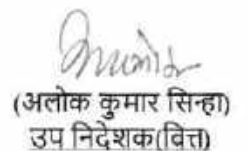 (अलोक कुमार सिन्हा)
उप निदेशक(वित्त)